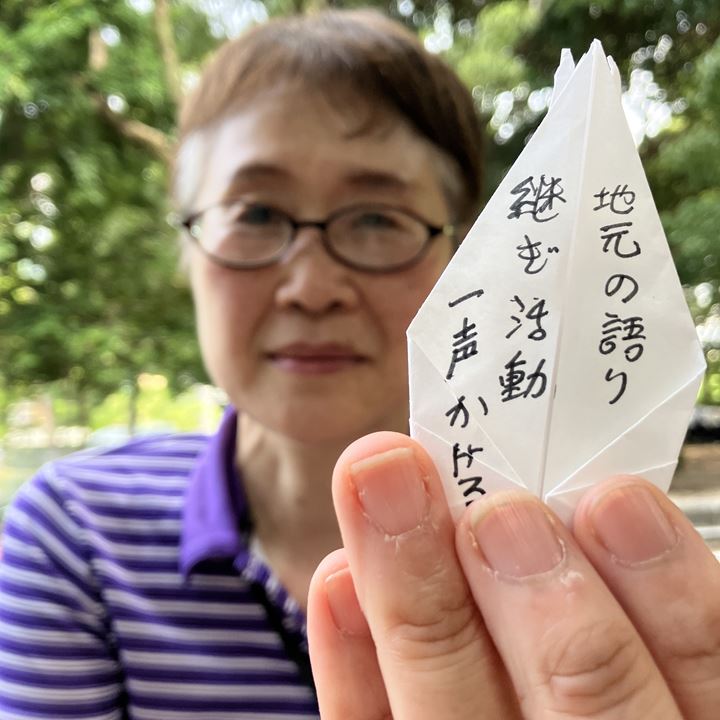 地元の語り
継ぎ活動
一声かける